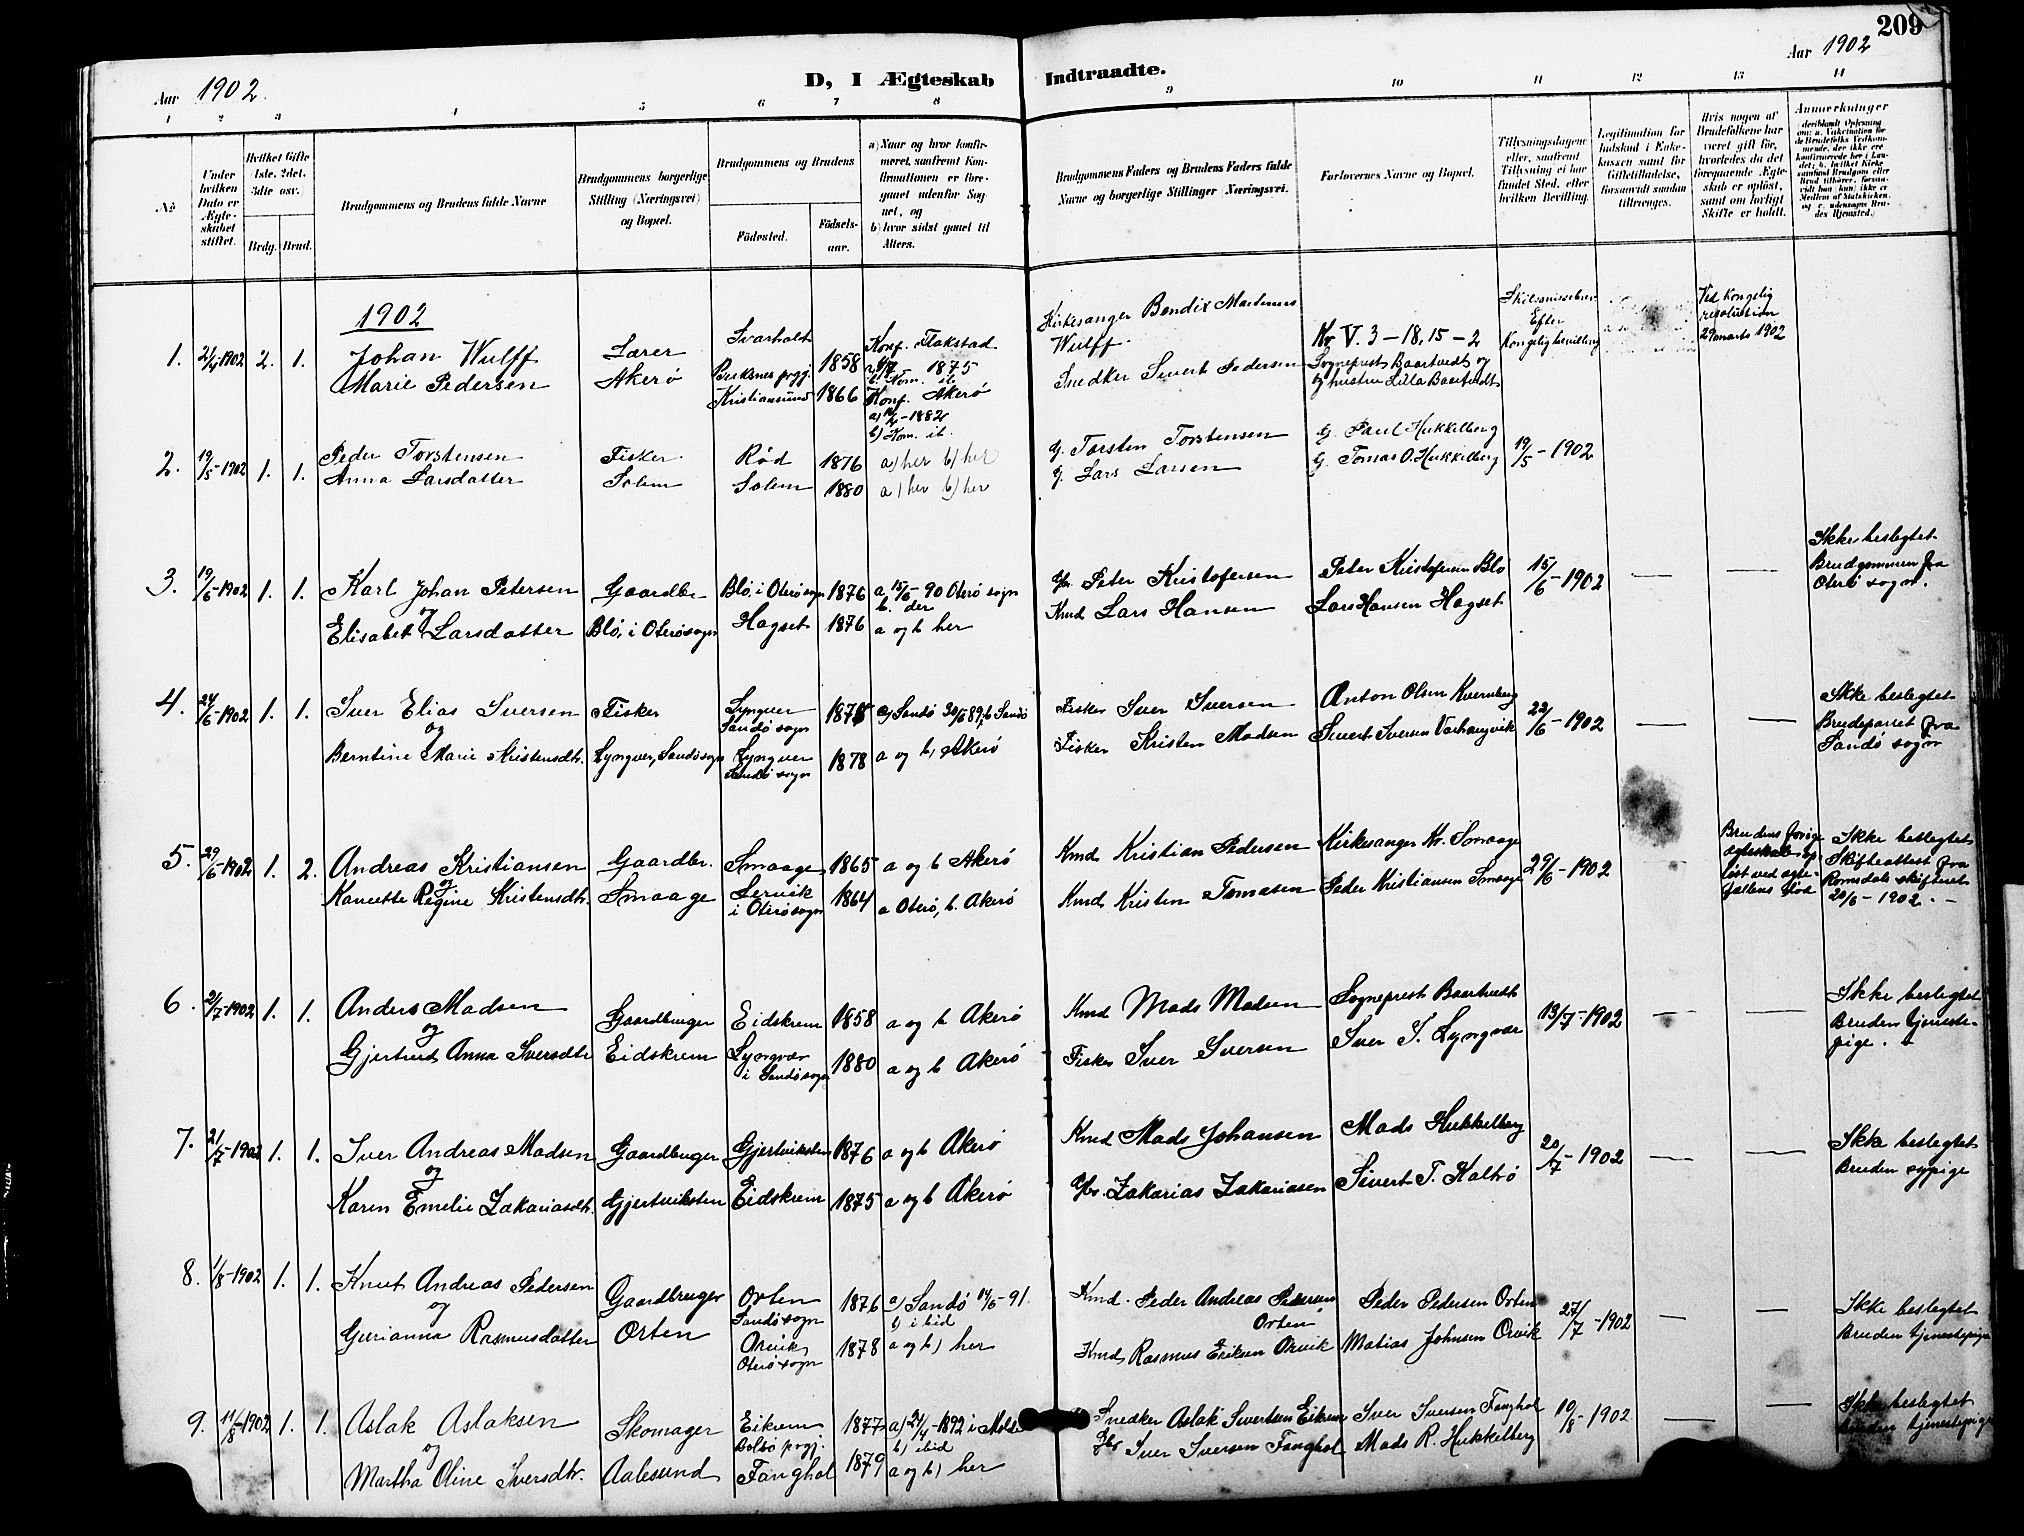 209
Aar 1902.
D, I Ægteskab Indtraadte.
Aar 1902
1 2 3 4 5 6 7 8 9 10 11 12 13 14
No
Under hvilken Dato er Ægteskabet stiftet.
Hvilket Gifte 1ste, 2det, 3die osv.)
Brdg. Brud.
Brudgommens og Brudens fulde Navne
Brudgommens borgerlige Stilling (Næringsvei) og Bopæl.
Brudgommens og Brudens
Fødested.
Fødselsaar.
a) Naar og hvor konfirmeret, saafremt Konfirmationen er foregaaet udenfor Sognet, og
b) hvor sidst gaaet til Alters.
Brudgommens Faders og Brudens Faders fulde Navne og borgerlige Stillinger (Næringsvei.
Forlovernes Navne og Bopæl.
Tillysningsdagene eller, saafremt Tillysning ei har fundet Sted, efter hvilken Bevilling.
Legitimation for Indskud i Enkekassen samt for Giftetilladelse, forsaavidt saadan tiltrænges.
Hvis nogen af Brudefolkene har været gift før, hvorledes da det foregaaende Ægteskab er opløst, samt om lovligt Skifte er holdt.
Anmerkninger
1902
1. 2/4-1902 2. 1. Johan Wulff Lærer Svarholt 1858 Konf. Flakstad 1875 Kirkesanger Bendix Martinus Wulff. Kr V. 3-18, 15-2 Efter Kongelig bevilling Ved Kongelig resolution 29 marts 1902
Marie Pedersen Akerö Kristiansund 1866 Konf. Akerö 1882 b) Kom. ib. Snedker Sivert Pedersen Sogneprest Baartvedt og hustru Lilla Baartvedt
2. 19/5-1902 1. 1. Peder Torstensen Fisker Rød 1876 a) her b) her G. Torsten Torstensen G. Paul Hukkelberg 19/5-1902
Anna Larsdatter Solem Solem 1880 a) her b) her G. Lars Larsen G. Tomas O. Hukkelberg
3. 19/6-1902 1. 1. Karl Johan Petersen Gaardbr. Blö, i Oterö sogn 1876 a 15/6-90 Oterö sogn b. der Gbr. Peter Kristofersen Peter Kristofersen Blö 15/6-1902 — — Ikke beslegtet Brudgommen fra Oterö sogn.
og
Elisabet Larsdatter Blö, i Oterösogn Hagset 1876 a og b her Kmd Lars Hansen Lars Hansen Hagset
4. 24/6-1902 1. 1. Iver Elias Iversen Fisker Lyngver Sandö sogn 1875 a) Sandö 30/6 89, b Sandö Fisker Iver Iversen Anton Olsen Kvernberg 22/6-1902 — — Ikke beslegtet Brudeparret fra Sandö sogn
og
Berntine Marie Kristensdtr. Lyngver, Sandösogn Lyngver Sandö sogn 1878 a og b, Akerö Fisker Kristen Madsen Sivert Iversen Varhaugvik
5. 29/6-1902 1. 2. Andreas Kristiansen Gaardbr. Smaage 1865 a og b Akerö Kmd Kristian Pedersen Kirkesanger Kr. Smaage 29/6-1902 — Brudens forrige egteskab opløst ved egtefællens död Ikke beslegtet Skifteattest fra Romsdals skifteret 20/6-1902.-
og
Hansette Regine Kristensdtr. Smaage Lervik i Oterösogn 1864 a Oterö, b. Akerö Kmd Kristen Tomasen Peder Kristiansen Smaage
6. 21/7-1902 1. 1. Anders Madsen Gaardbruger Eidskrem 1858 a og b Akerö Kmd Mads Madsen Sogneprest Baartvedt 13/7-1902 — — Ikke beslegtet Bruden tjenestepige.
og
Gjertrud Anna Iversdtr Eidskrem Lyngvær i Sandösogn 1880 a og b Akerö Fisker Iver Iversen Iver I. Lyngvær
7. 21/7-1902 1. 1. Iver Andreas Madsen Gaardbruger Gjertviksten 1876 a og b Akerö Kmd Mads Johansen Mads Hukkelberg 20/7-1902 — — Ikke beslegtet Bruden sypige
og
Karen Emelie Zakariasdtr. Gjertviksten Eidskrem 1875 a og b Akerö Gbr. Zakarias Zakariasen Sivert T. Kaltrö
8. 1/8-1902 1. 1. Knut Andreas Pedersen Gaardbruger Orten Sandö sogn 1876 a) Sandö 14/6-91. b) ibid Kmd. Peder Andreas Pedersen Orten Peder Pedersen Orten 27/7-1902 — — Ikke beslegtet Bruden tjenestepige
og
Gurianna Rasmusdatter Orten Orvik Oterö sogn 1878 a og b) her Kmd Rasmus Eriksen Orvik Matias Johnsen Orvik
9. 11/8-1902 1. 1. Aslak Aslaksen Skomager Eikrem Bolsö prgj. 1877 a) 24/4-1892 i Molde b) ibid Snedker Aslak Sivertsen Eikrem Iver Iversen Fanghol 10/8-1902 — — Ikke beslegtet Bruden tjenestepige
og
Martha Oline Iversdtr. Aalesund Fanghol 1879 a og b) her Gbr Iver Iversen Fanghol Mads R. Hukkelberg